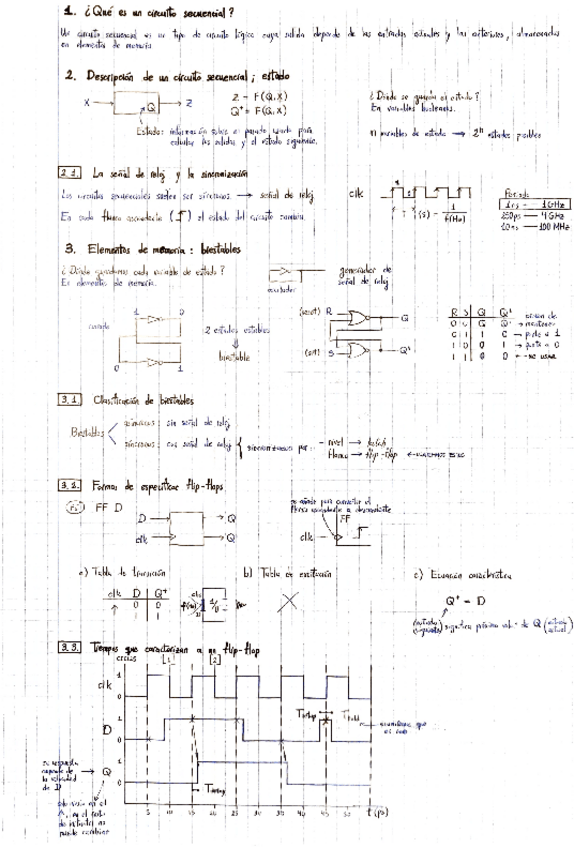 1. ¿Qué es un circuito secuencial?
Un circuito secuencial es un tipo de circuito lógico cuya salida depende de las entradas actuales y las anteriores, almacenadas
en elementos de memoria
2. Descripción de un circuito secuencial; estado
X → Q → Z
Z = F(Q,X)
Q⁺ = F(Q,X)
¿Dónde se guarda el estado?
En variables
n variables de estado → 2ⁿ estados posibles
Estado: información sobre el pasado usada para
calcular las salidas y el estado siguiente.
2.1. La señal de reloj y la sincronización
Los circuitos secuenciales suelen ser síncronos. → señal de reloj
En cada flanco ascendente ( ) el estado del circuito cambia.
clk
T (s) = 1/f(Hz)
Periodo
1 ns — 1 GHz
250 ps — 4 GHz
10 ns — 100 MHz
3. Elementos de memoria: biestables
¿Dónde guardamos cada variable de estado?
En elementos de memoria.
generador de
señal de reloj
1 0
0 1
2 estados estables
⇓
biestable
(reset) R
Q
(set) S
Q'
R S Q Q'
0 0 Q Q' → mantener
0 1 1 0 → puesta a 1
1 0 0 1 → puesta a 0
1 1 0 0 ← no usar
3.1. Clasificación de biestables
Biestables
asíncronos: sin señal de reloj
síncronos: con señal de reloj
sincronizados por:
- nivel → latch
- flanco → flip-flop
3.2. Formas de especificar flip-flops
FF D
D → → Q
clk → → Q'
se añade para convertir el
flanco ascendente a descendente
FF
clk
a) Tabla de transición
clk D Q⁺
↑ 0 0
1 1
b) Tabla de excitación
c) Ecuación característica
Q⁺ = D
(estado siguiente) significa próximo valor de Q (estado actual)
3.3. Tiempos que caracterizan a un flip-flop
[1] [2]
clk
1
0
D
1
0
Q
1
0
5 10 15 20 25 30 35 40 45 50 t (ps)